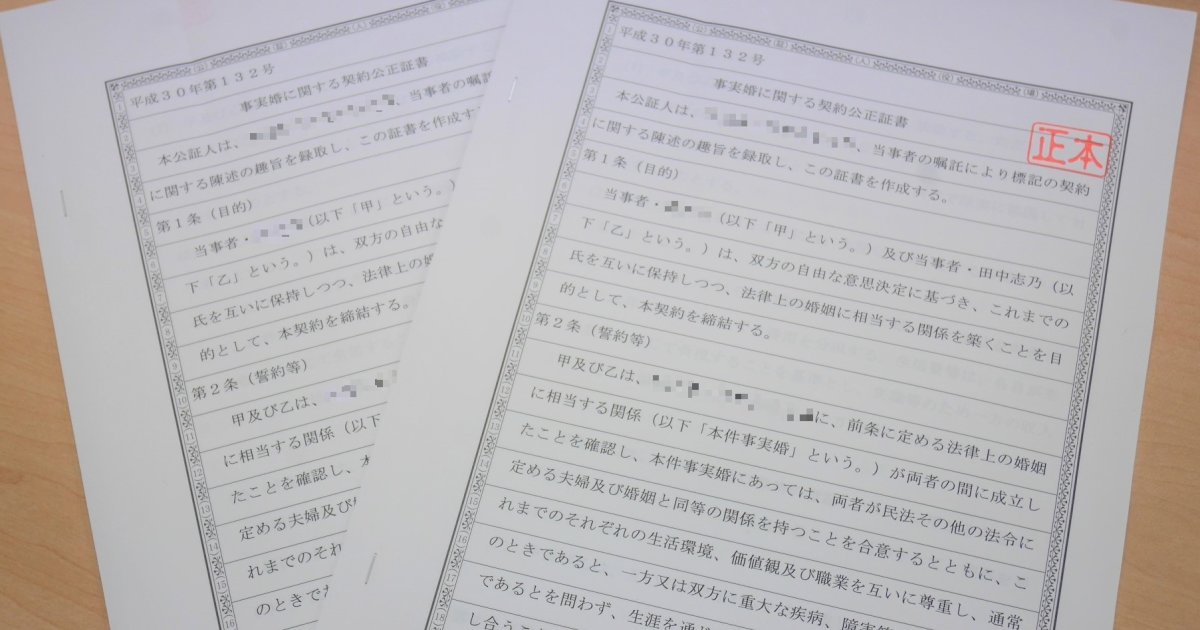 平成30年第132号
事実婚に関する契約公正証書
本公証人は、
、当事者の嘱託
に関する陳述の趣旨を録取し、この証書を作成す
第1条（目的）
当事者・
（以下「甲」という。）
下「乙」という。）は、双方の自由な
氏を互いに保持しつつ、法律上の婚
的として、本契約を締結する。
第2条（誓約等）
甲及び乙は、
に相当する関係（以下
たことを確認し、本
定める夫婦及び
れまでのそれ
のときで
平成30年第132号
事実婚に関する契約公正証書
正本
本公証人は、
、当事者の嘱託により標記の契約
に関する陳述の趣旨を録取し、この証書を作成する。
第1条（目的）
当事者・
（以下「甲」という。）及び当事者・田中志乃（以
下「乙」という。）は、双方の自由な意思決定に基づき、これまでの
氏を互いに保持しつつ、法律上の婚姻に相当する関係を築くことを目
的として、本契約を締結する。
第2条（誓約等）
甲及び乙は、
に、前条に定める法律上の婚姻
に相当する関係（以下「本件事実婚」という。）が両者の間に成立し
たことを確認し、本件事実婚にあっては、両者が民法その他の法令に
定める夫婦及び婚姻と同等の関係を持つことを合意するとともに、こ
れまでのそれぞれの生活環境、価値観及び職業を互いに尊重し、通常
のときであると、一方又は双方に重大な疾病、障害
であるとを問わず、生涯を通
し合うこ